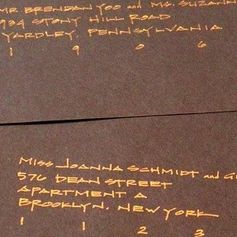 MR BRENDAN YOO and MS. SUZANN
934 STONY HILL ROAD
YARDLEY. PENNSYLVANIA
1 9 0 6
MISS JOANNA SCHMIDT and G
576 DEAN STREET
APARTMENT A
BROOKLYN. NEW YORK
1 1 2 3